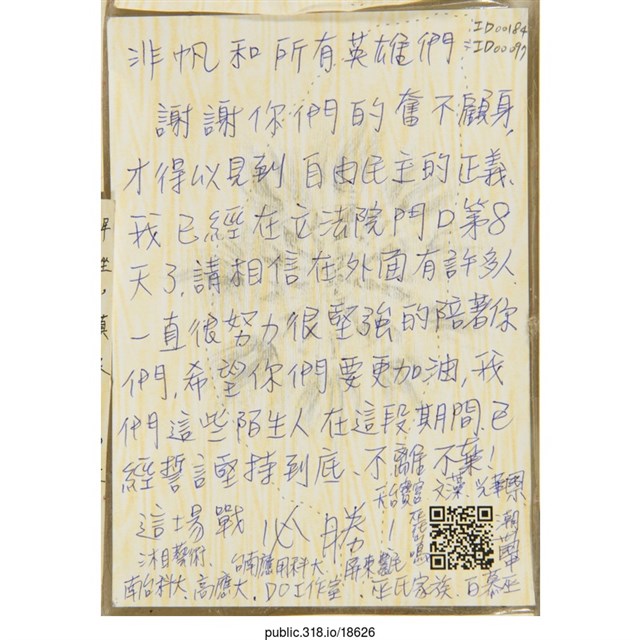 ID00184
ID00097
非帆和所有英雄們
謝謝你們的奮不顧身,
才得以見到自由民主的正義、
我已經在立法院門口第8
天了,請相信在外面有許多人
一直很努力很堅強的陪著你
們,希望你們要更加油,我
們這些陌生人在這段期間已
經誓言堅持到底、不離不棄!
這場戰必勝!
文藻、光華
南台科大、高應大、DO工作室、
家族、
public.318.io/18626